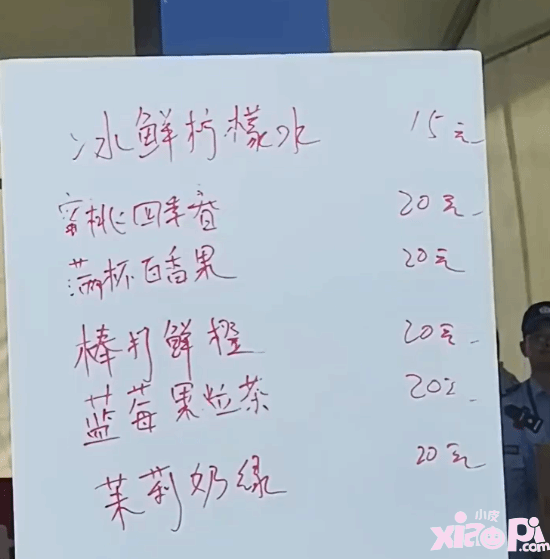 冰鲜柠檬水 15元
蜜桃四季春 20元
满杯百香果 20元
棒打鲜橙 20元
蓝莓果粒茶 20元
茉莉奶绿 20元
小皮
xiaopi.com